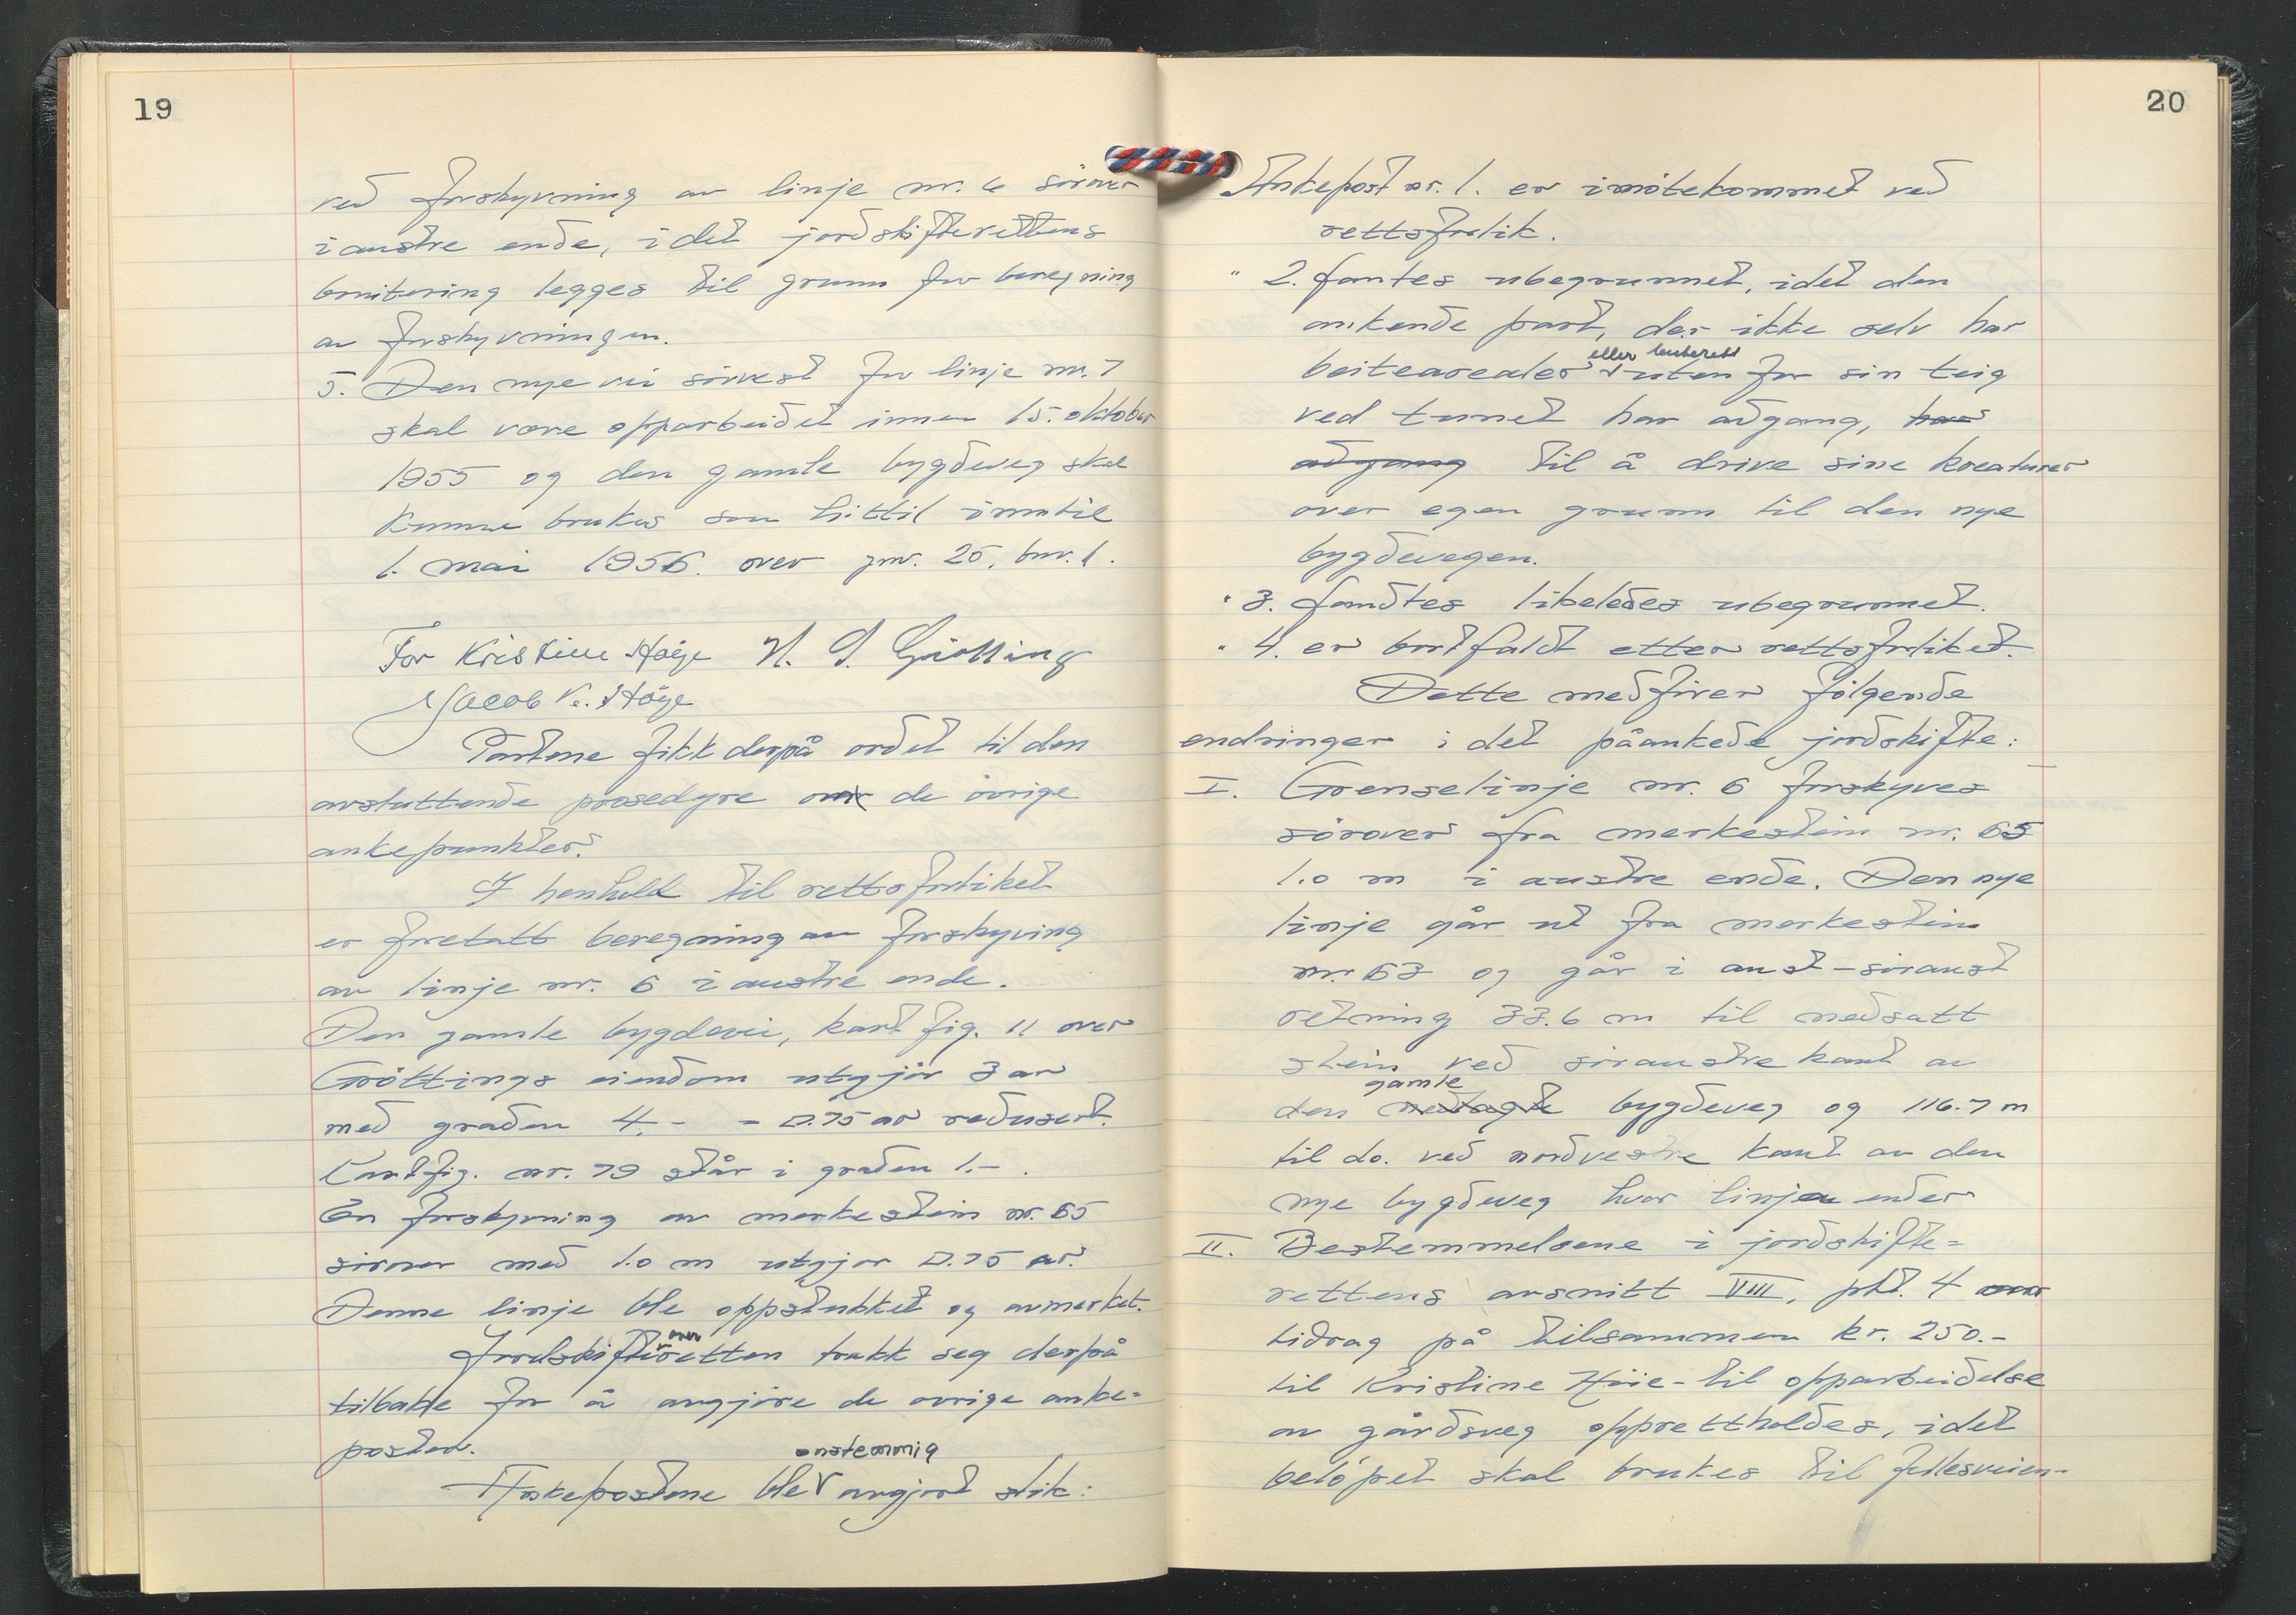 19
ved forskyvning av linje nr. 6 sörover
i austre ende, idet jordskifterettens
bonitering legges til grunn for beregning
av forskyvningen.
5. Den nye vei sörvest for linje nr. 7
skal være opparbeidet innen 15. oktober
1955 og den gamle bygdeveg skal
kunne brukes som hittil inntil
1. mai 1956. over gnr. 25, bnr. 1.
For Kristine Höye N. S. Grötting
Jacob K. Höye
Partene fikk derpå ordet til den
avsluttende prosedyre om de övrige
ankepunkter.
I henhold til rettsforliket
er foretatt beregning av forskyving
av linje nr. 6 i austre ende.
Den gamle bygdevei, kart fig. 11 over
Gröttings eiendom utgjör 3 ar
med graden 4.- = 0.75 ar redusert.
Kartfig. nr. 79 står i graden 1.- .
En forskyvning av merkestein nr. 65
sörover med 1.0 m utgjor 0.75 ar.
Denne linje ble oppstukket og avmerket.
over
Jordskifteretten trakk seg derpå
tilbake for å avgjöre de övrige anke=
poster.
enstemmig
Ankepostene ble avgjort slik:
20
Ankepost nr. 1. er imötekommet ved
rettsforlik.
" 2. fantes ubegrunnet, idet den
ankende part, der ikke selv har
eller beiterett
beitearealer uten for sin teig
ved tunet har adgang, har
adgang til å drive sine kreaturer
over egen grunn til den nye
bygdevegen.
" 3. fandtes likeledes ubegrunnet.
" 4. er bortfaldt etter rettsforliket.
Dette medförer fölgende
endringer i det påankede jordskifte:
I. Grenselinje nr. 6 forskyves
sörover fra merkestein nr. 65
1.0 m i austre ende. Den nye
linje går ut fra merkestein
nr. 63 og går i aust-söraust
retning 33.6 m til nedsatt
stein ved söraustre kant av
gamle
den nedlagte bygdeveg og 116.7 m
til do. ved nordvestre kant av den
nye bygdeveg hvor linjen ender
II. Bestemmelsene i jordskifte=
rettens avsnitt VIII, pkt. 4 om
tidrag på tilsammen kr. 250.-
til Kristine Höie - til opparbeidelse
av gårdsveg opprettholdes, idet
belöpet skal brukes til fellesveien-